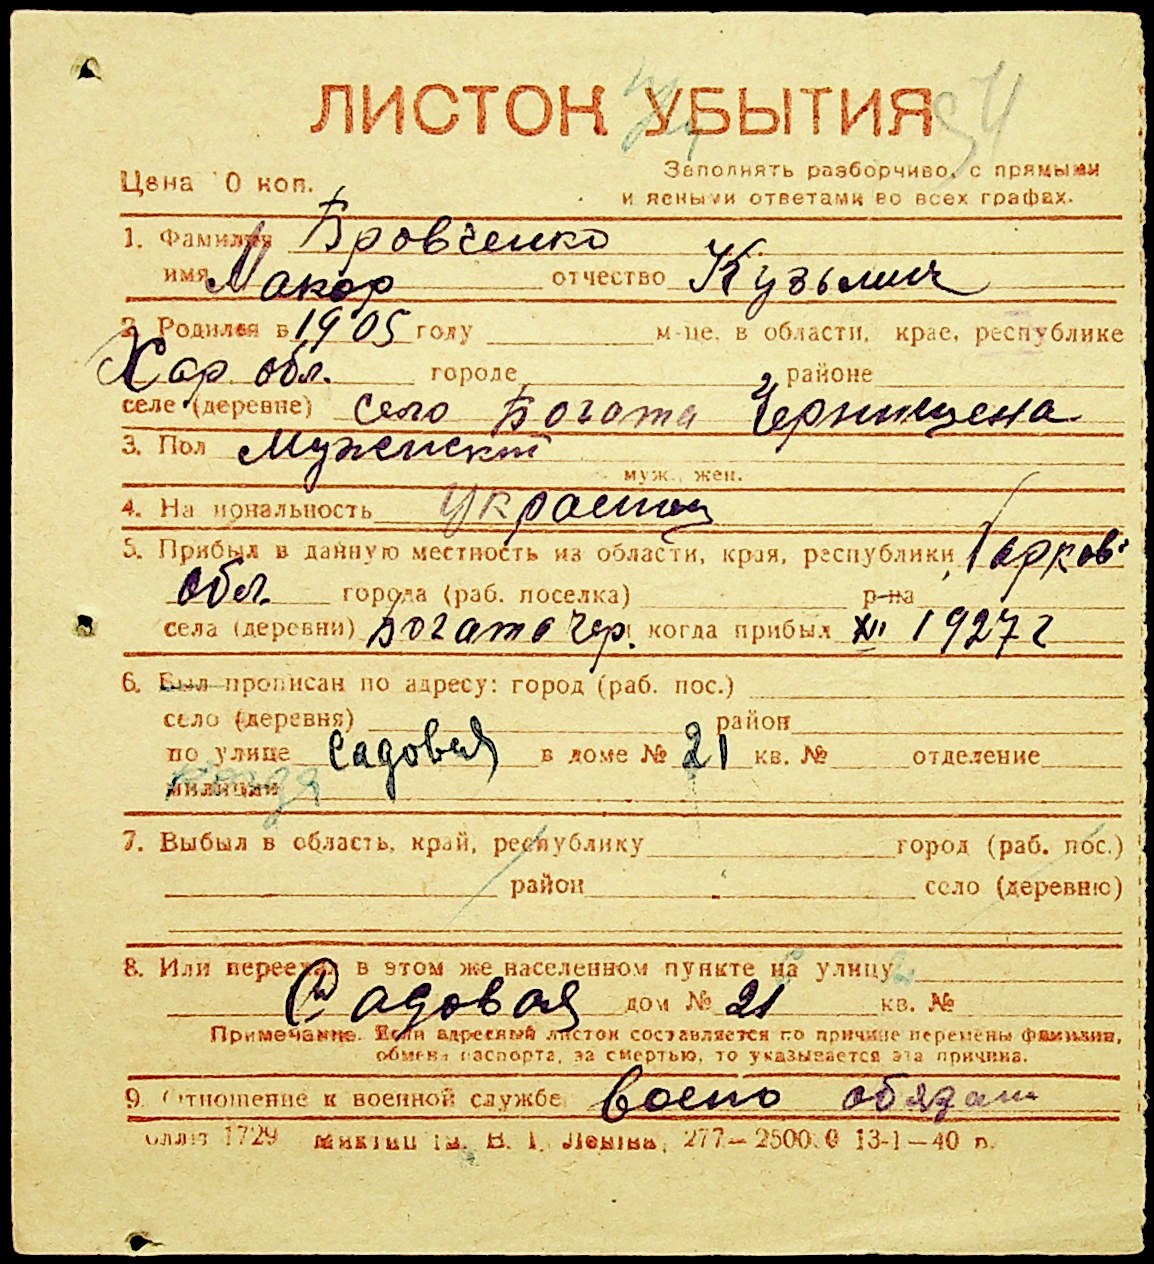 ЛИСТОК УБЫТИЯ 54
Цена 10 коп.
Заполнять разборчиво, с прямыми
и ясными ответами во всех графах.
1. Фамилия Бровченко
имя Макар отчество Кузьмич
2. Родился в 1905 году м-це, в области, крае, республике
Хар обл. городе районе
селе (деревне) село Богата Чернищена
3. Пол Мужеской
муж., жен.
4. Национальность Украинец
5. Прибыл в данную местность из области, края, республики Харков
обл. города (раб. поселка) р-на
села (деревни) Богата Чер. когда прибыл XII 1927 г
6. Был прописан по адресу: город (раб. пос.)
село (деревня) район
по улице Садовая в доме № 21 кв. № отделение
милиции
7. Выбыл в область, край, республику город (раб. пос.)
район село (деревню)
8. Или переехал в этом же населенном пункте на улицу
Садовая дом № 21 кв. №
Примечание. Если адресный листок составляется по причине перемены фамилии,
обмена паспорта, за смертью, то указывается эта причина.
9. Отношение к военной службе воено обязан
1729 В. И. Ленина, 277—2500.0 13-1—40 г.